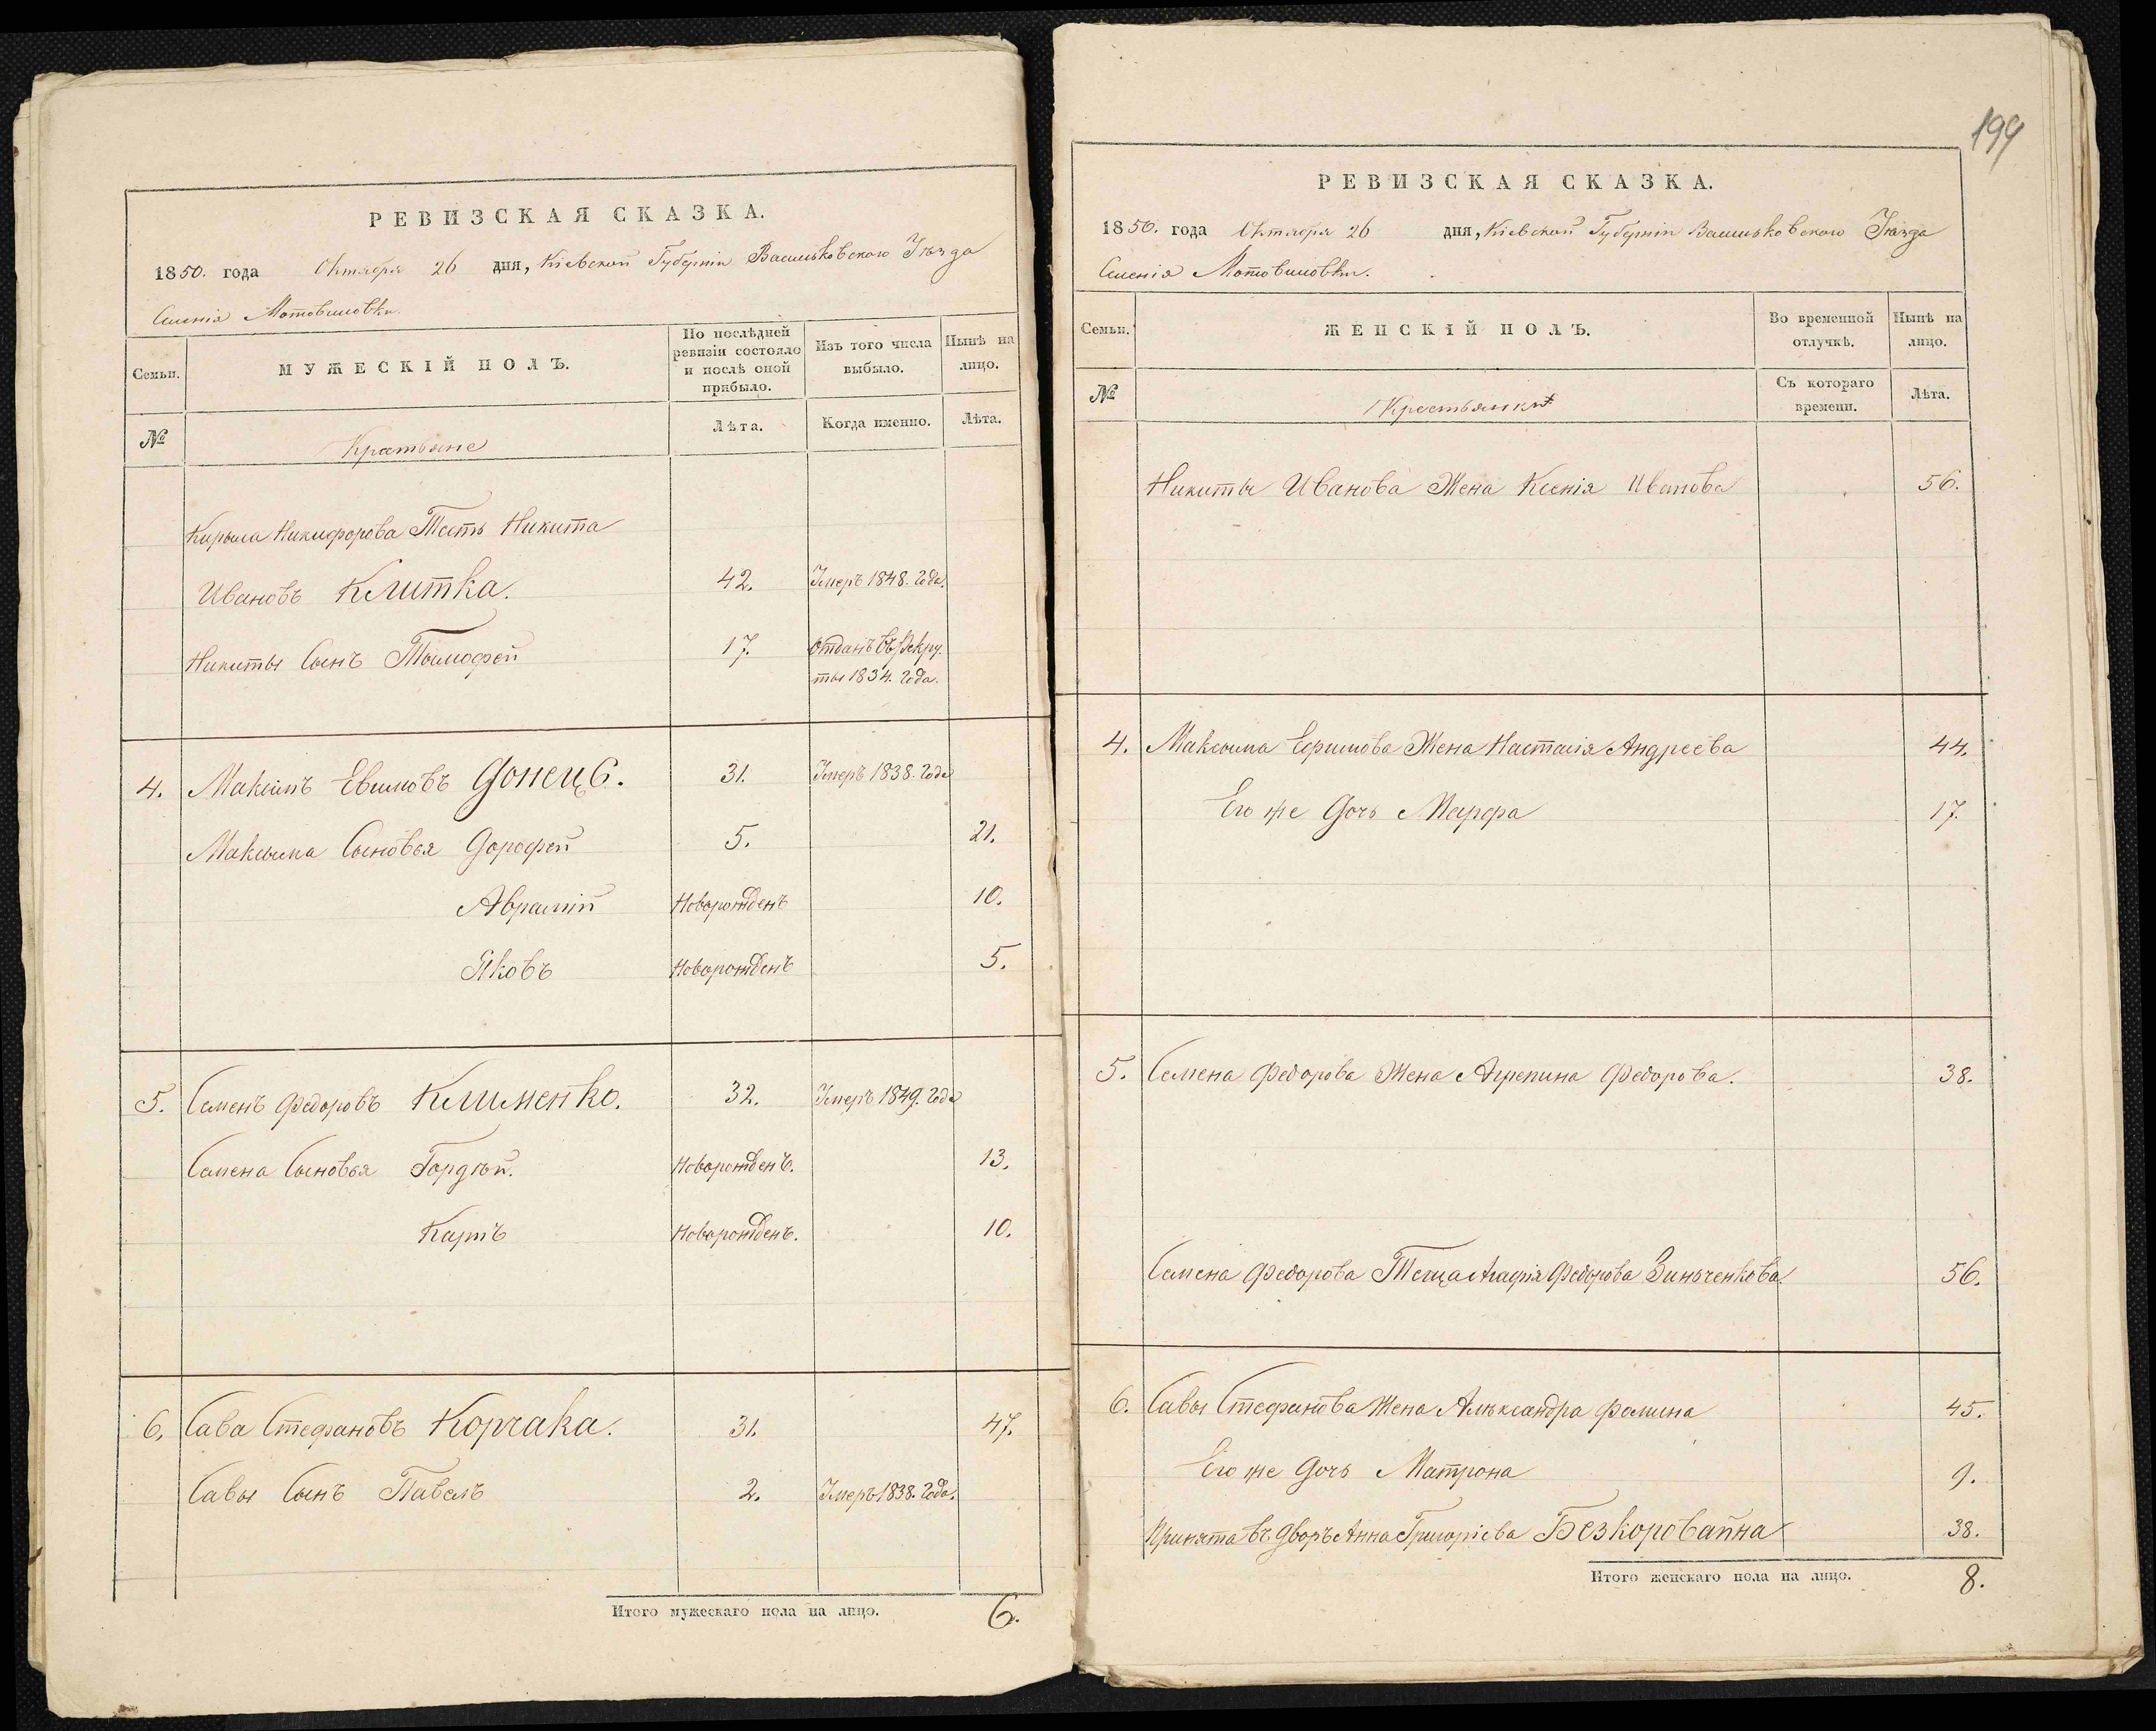 РЕВИЗСКАЯ СКАЗКА.
1850. года Октября 26 дня, Кіевской Губерніи Васильковского Уѣзда
Селенія Мотовиловки.
Семьи.
МУЖЕСКІЙ ПОЛЪ.
По послѣдней
ревизіи состояло
и послѣ оной
прибыло.
Изъ того числа
выбыло.
Нынѣ на
лицо.
№
Крестьяне
Лѣта.
Когда именно.
Лѣта.
Кирыла Никифорова Тесть Никита
Ивановъ Клитка. 42. Умеръ 1848. Года.
Никиты Сынъ Тымофей 17. Отданъ въ Рекру-
ты 1834. Года.
4. Максимъ Евимовъ Донецъ. 31. Умеръ 1838. Года
Максима Сыновья Дорофей 5. 21.
Аврамій Новорожденъ 10.
Яковъ Новорожденъ 5.
5. Семенъ Федоровъ Клименко. 32. Умеръ 1849. Года
Семена Сыновья Гордѣй. Новорожденъ. 13.
Карпъ Новорожденъ. 10.
6. Сава Стефановъ Корчака. 31. 47.
Савы Сынъ Павелъ 2. Умеръ 1838. Года.
Итого мужескаго пола на лицо. 6.
199
РЕВИЗСКАЯ СКАЗКА.
1850. года Октября 26 дня, Кіевской Губерніи Васильковского Уѣзда
Селенія Мотовиловки.
Семьи.
ЖЕНСКІЙ ПОЛЪ.
Во временной
отлучкѣ.
Нынѣ на
лицо.
№
Крестьянки
Съ котораго
времени.
Лѣта.
Никиты Иванова Жена Ксенія Иванова 56.
4. Максима Ефимова Жена Настасія Андреева 44.
Его же Дочь Марфа 17.
5. Семена Федорова Жена Агрепина Федорова. 38.
Семена Федорова Теща Агафія Федорова Зинченкова. 56.
6. Савы Стефанова Жена Александра Фомина 45.
Его же Дочь Матрона 9.
Принята въ Дворъ Анна Григоріева Безкоровайна 38.
Итого женскаго пола на лицо. 8.